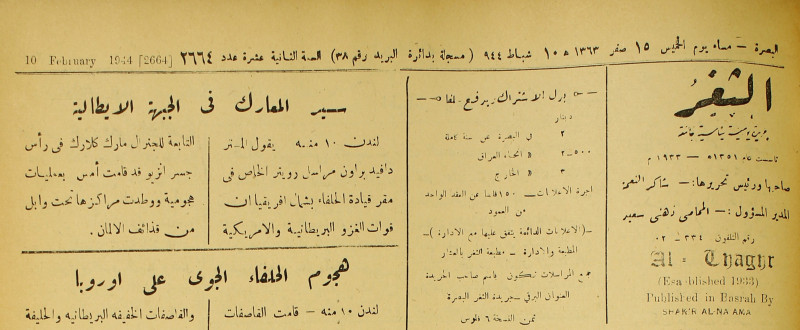 البصرة – مساء يوم الخميس ١٥ صفر ١٣٦٣ هـ ١٠ شباط ٩٤٤ ( مسجلة بدائرة البريد رقم ٣٨) السنة الثانية عشرة عدد ٢٦٦٤ [2664] 10 February 1944
الثغر
جريدة يومية سياسية جامعة
تأسست عام ١٣٥١ هـ – ١٩٣٣ م
صاحبها ورئيس تحريرها :– شاكر النعمة
المدير المسؤول :– المحامي زهني سعيد
رقم التلفون ٣٣٤ – ٠٢
Al - Thaghr
(Established 1933)
Published in Basrah By
SHAKIR AL-NAAMA
بدل الاشتراك يدفع سلفا
دينار
٢ في البصرة عن سنة كاملة
٢–٥٠٠ « انحاء العراق
٣ « الخارج
اجرة الاعلانات – ١٥٠ فلسا عن العقد الواحد
من العمود
–( الاعلانات الدائمة يتفق عليها مع الادارة )–
المطبعة والادارة – مطبعة الثغر بالعشار
جميع المراسلات تكون باسم صاحب الجريدة
العنوان البرقي – جريدة الثغر البصرة
ثمن النسخة ٦ فلوس
سير المعارك في الجبهة الايطالية
لندن ١٠ منه – يقول المستر
دافيد براون مراسل رويتر الخاص في
مقر قيادة الحلفاء بشمال افريقيا ان
قوات الغزو البريطانية والامريكية
التابعة للجنرال مارك كلارك في رأس
جسر انزيو قد قامت أمس بعمليات
هجومية ووطدت مراكزها تحت وابل
من قذائف الالمان .
هجوم الحلفاء الجوي على اوروبا
لندن ١٠ منه – قامت القاصفات
والقاصفات الخفيفه البريطانيه والحليفة